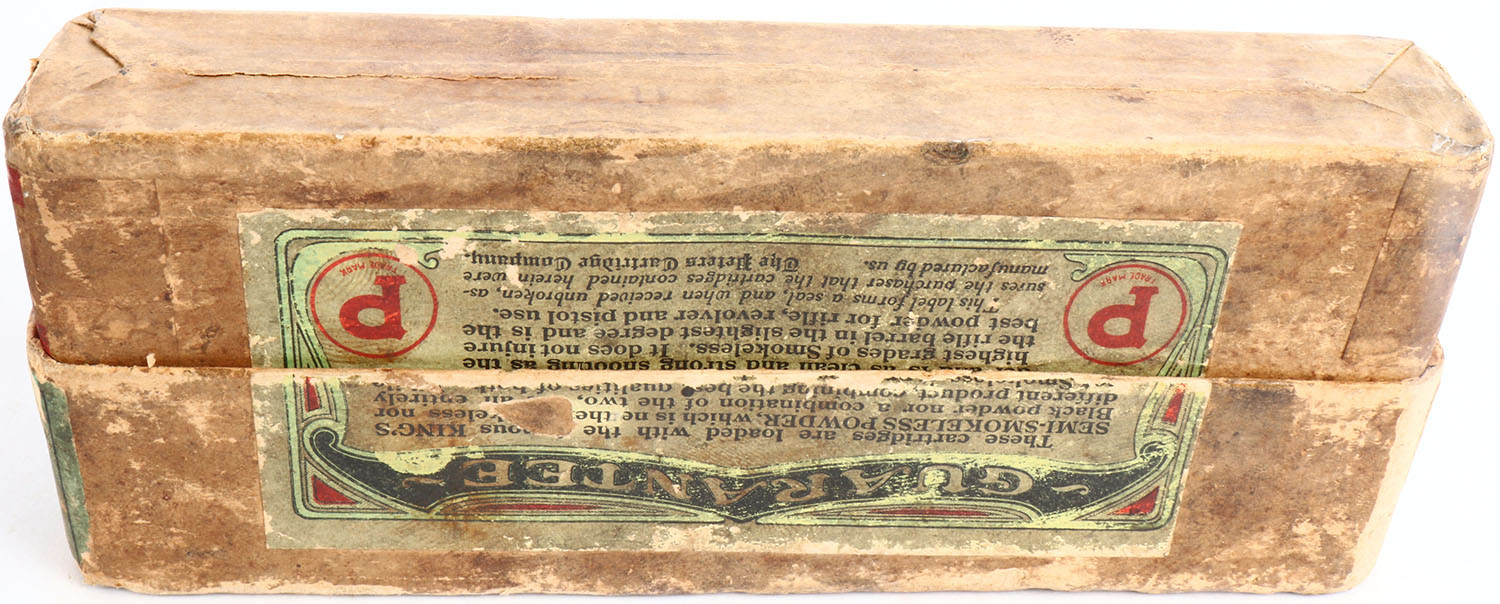 GUARANTEE
These cartridges are loaded with the famous KING'S
SEMI-SMOKELESS POWDER, which is neither Smokeless nor
Black powder nor a combination of the two, an entirely
different product combining the best qualities of both
as clean and strong shooting as the
highest grades of Smokeless. It does not injure
the rifle barrel in the slightest degree and is the
best powder for rifle, revolver and pistol use.
This label forms a seal, and when received unbroken, as-
sures the purchaser that the cartridges contained herein were
manufactured by us. The Peters Cartridge Company.
TRADE MARK
P
TRADE MARK
P